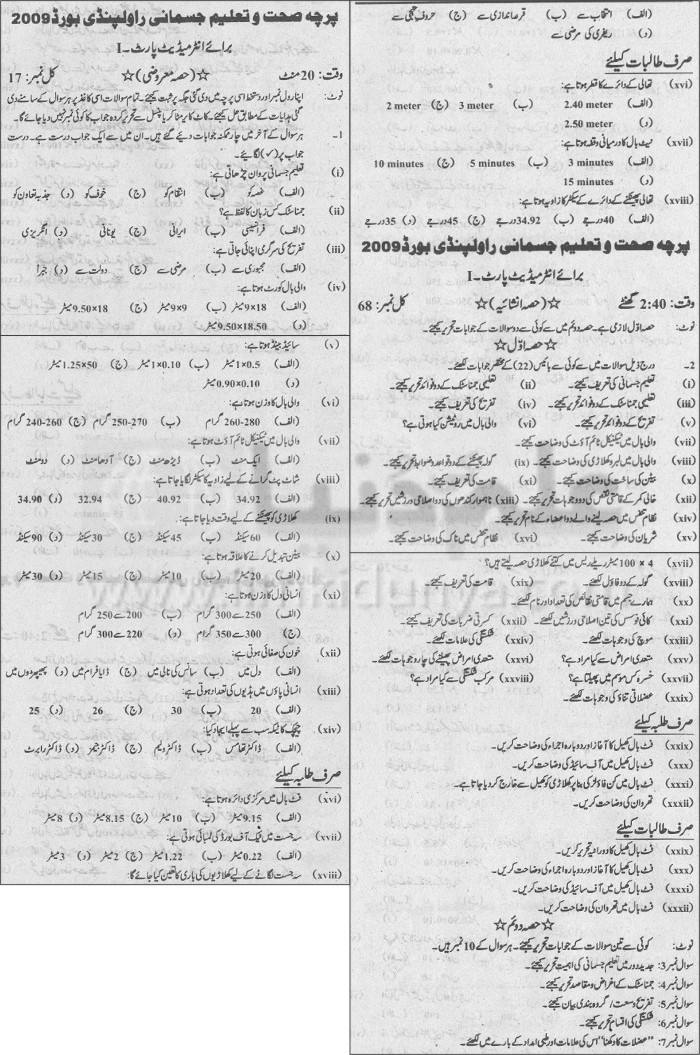 پرچہ صحت و تعلیم جسمانی راولپنڈی بورڈ 2009
برائے انٹرمیڈیٹ پارٹ-I
وقت: 20 منٹ ☆(حصہ معروضی)☆ کل نمبر: 17
نوٹ: اپنا رول نمبر اور دستخط اسی پرچہ میں دی گئی جگہ پر ثبت کیجئے۔ تمام سوالات اسی کاغذ پر ہر سوال کے سامنے دی
گئی ہدایات کے مطابق حل کیجئے۔ کاٹ کر یا مٹا کر یا پنسل سے تحریر کردہ جواب کا کوئی نمبر نہیں دیا جائے گا۔
1- ہر سوال کے آخر میں چار ممکنہ جوابات دیئے گئے ہیں۔ ان میں سے ایک جواب درست ہے۔ درست
جواب پر (✓) لگائیے۔
(i) تعلیم جسمانی پروان چڑھاتی ہے:
(الف) غصہ کو (ب) انتقام کو (ج) خوف کو (د) جذبہ تعاون کو
(ii) جمناسٹک کس زبان کا لفظ ہے؟
(الف) فرانسیسی (ب) ایرانی (ج) یونانی (د) انگریزی
(iii) تفریح کی سرگرمی اپنائی جاتی ہے:
(الف) مجبوری سے (ب) مرضی سے (ج) دولت سے (د) جبراً
(iv) والی بال کورٹ ہوتا ہے:
(الف) 18×9 میٹر (ب) 9×9 میٹر (ج) 18×9.50 میٹر
(د) 18.50×9.50 میٹر
(v) سائیڈ بینڈ ہوتا ہے:
(الف) 0.5×1 میٹر (ب) 0.10×1 میٹر (ج) 50×1.25 میٹر
(د) 0.10×0.90 میٹر
(vi) والی بال کا وزن ہوتا ہے:
(الف) 260-280 گرام (ب) 250-270 گرام (ج) 240-260 گرام
(vii) والی بال میں ٹیکنیکل ٹائم آؤٹ ہوتا ہے:
(الف) ایک منٹ (ب) ڈیڑھ منٹ (ج) آدھا منٹ (د) دو منٹ
(viii) شاٹ پٹ گرانے کے لیے زاویہ کا سیکٹر لگایا جاتا ہے:
(الف) 34.92 (ب) 40.92 (ج) 32.94 (د) 34.90
(ix) کھلاڑی کو پھینکنے کے لیے وقت دیا جاتا ہے:
(الف) 60 سیکنڈ (ب) 45 سیکنڈ (ج) 30 سیکنڈ (د) 90 سیکنڈ
(x) بیٹن تبدیل کرنے کا علاقہ ہوتا ہے:
(الف) 20 میٹر (ب) 10 میٹر (ج) 15 میٹر (د) 30 میٹر
(xi) انسانی دل کا وزن ہوتا ہے:
(الف) 250 سے 300 گرام (ب) 200 سے 250 گرام
(ج) 300 سے 350 گرام (د) 220 سے 300 گرام
(xii) خون کی صفائی ہوتی ہے:
(الف) دل میں (ب) سانس کی نالی میں (ج) ڈایا فرام میں (د) پھیپھڑوں میں
(xiii) انسانی پاؤں میں ہڈیوں کی تعداد ہوتی ہے:
(الف) 20 (ب) 30 (ج) 26 (د) 25
(xiv) چیچک کا ٹیکہ سب سے پہلے ایجاد کیا:
(الف) ڈاکٹر تھامس (ب) ڈاکٹر ولیم (ج) ڈاکٹر جینر (د) ڈاکٹر رابرٹ
صرف طلبہ کیلئے
(xvi) فٹ بال میں مرکزی دائرہ ہوتا ہے:
(الف) 9.15 میٹر (ب) 10 میٹر (ج) 8.15 میٹر (د) 8 میٹر
(xvii) سہ جست میں ٹیک آف بورڈ کی لمبائی ہوتی ہے:
(الف) 0.22 میٹر (ب) 1.22 میٹر (ج) 2 میٹر (د) 3 میٹر
(xviii) سہ جست لگانے کے لیے کھلاڑیوں کی باری کا تعین کیا جائے گا:
(الف) انتخاب سے (ب) قرعہ اندازی سے (ج) حروف تہجی سے
(د) ریفری کی مرضی سے
صرف طالبات کیلئے
(xvi) تھالی کے دائرے کا قطر ہوتا ہے:
(الف) 2.40 meter (ب) 3 meter (ج) 2 meter
(د) 2.50 meter
(xvii) نیٹ بال کا درمیانی وقفہ ہوتا ہے:
(الف) 3 minutes (ب) 5 minutes (ج) 10 minutes
(د) 15 minutes
(xviii) تھالی پھینکنے کے دائرے کے سیکٹر کا زاویہ ہوتا ہے:
(الف) 40 درجے (ب) 34.92 درجے (ج) 45 درجے (د) 35 درجے
پرچہ صحت و تعلیم جسمانی راولپنڈی بورڈ 2009
برائے انٹرمیڈیٹ پارٹ-I
وقت: 2:40 گھنٹے ☆(حصہ انشائیہ)☆ کل نمبر: 68
نوٹ: حصہ اوّل لازمی ہے۔ حصہ دوئم میں سے کوئی سے دو سوالات کے جوابات تحریر کیجئے۔
☆حصہ اوّل☆
2- درج ذیل سوالات میں سے کوئی سے بائیس (22) کے مختصر جوابات لکھئے۔
(i) تعلیم جسمانی کی تعریف کیجئے۔ (ii) تعلیمی جمناسٹک کے دو فوائد تحریر کیجئے۔
(iii) تعلیمی جمناسٹک کے دو فوائد تحریر کیجئے۔ (iv) تفریح کی تعریف کیجئے۔
(v) تفریح کے دو فوائد تحریر کیجئے۔ (vi) والی بال میں روٹیشن کیا ہوتی ہے؟
(vii) والی بال میں ٹیکنیکل ٹائم آؤٹ کی وضاحت کیجئے۔
(viii) والی بال میں لبرو کھلاڑی کی وضاحت کیجئے۔ (ix) گولہ پھینکنے کے دو قواعد و ضوابط تحریر کیجئے۔
(x) بیٹن کی ساخت کی وضاحت کیجئے۔ (xi) قامت کی تعریف کیجئے۔
(xii) خالی کمر کے قامتی نقص کی دو وجوہات تحریر کیجئے۔ (xiii) ناہموار کندھوں کی دو اصلاحی ورزشیں تحریر کیجئے۔
(xiv) نظام تنفس میں حصہ لینے والے دو اعضاء کے نام تحریر کیجئے۔
(xv) شریان کی وضاحت کیجئے۔ (xvi) نظام تنفس میں ناک کی وضاحت کیجئے۔
(xvii) 4 × 100 میٹر ریلے ریس میں کتنے کھلاڑی حصہ لیتے ہیں؟
(xviii) گولہ کے دو فاؤل لکھئے۔ (xix) قامت کی تعریف کیجئے۔
(xx) ہمارے جسم میں قامتی نقائص کی تعداد اور نام لکھئے۔
(xxi) کائی فوسس کی تین اصلاحی ورزشیں لکھئے۔ (xxii) کسرتی ضربات کی تعریف کیجئے۔
(xxiii) موچ کی وجوہات لکھئے۔ (xxiv) شکستگی کی علامات لکھئے۔
(xxv) متعدی امراض سے کیا مراد ہے؟ (xxvi) متعدی امراض پھیلنے کی چار وجوہات لکھئے۔
(xxvii) خسرہ کس موسم میں پھیلتا ہے؟ (xxviii) مرکب شکستگی سے کیا مراد ہے؟
(xxix) عضلاتی تناؤ کی وجوہات لکھئے۔
صرف طلبہ کیلئے
(xxix) فٹ بال کھیل کا آغاز اور دوبارہ اجراء کی وضاحت کریں۔
(xxx) فٹ بال کھیل میں آف سائیڈ کی وضاحت کریں۔
(xxxi) فٹ بال میں کن فاؤلز کی بنا پر کھلاڑی کو کھیل سے خارج کر دیا جاتا ہے۔
(xxxii) تھرو ان کی وضاحت کریں۔
صرف طالبات کیلئے
(xxix) فٹ بال کھیل کا دورانیہ تحریر کریں۔
(xxx) فٹ بال کھیل کا آغاز اور دوبارہ اجراء کی وضاحت کریں۔
(xxxi) فٹ بال کھیل میں آف سائیڈ کی وضاحت کریں۔
(xxxii) فٹ بال میں تھرو ان کی وضاحت کریں۔
☆حصہ دوئم☆
نوٹ: کوئی سے تین سوالات کے جوابات تحریر کیجئے۔ ہر سوال کے 10 نمبر ہیں۔
سوال نمبر 3: جدید دور میں تعلیم جسمانی کی اہمیت تحریر کیجئے۔
سوال نمبر 4: جمناسٹک کے اغراض و مقاصد تحریر کیجئے۔
سوال نمبر 5: تفریح و سعت/ گروہ بندی بیان کیجئے۔
سوال نمبر 6: شکستگی کی اقسام تحریر کیجئے۔
سوال نمبر 7: "عضلات کا دکھنا" اس کی علامات اور طبی امداد کے بارے میں لکھئے۔